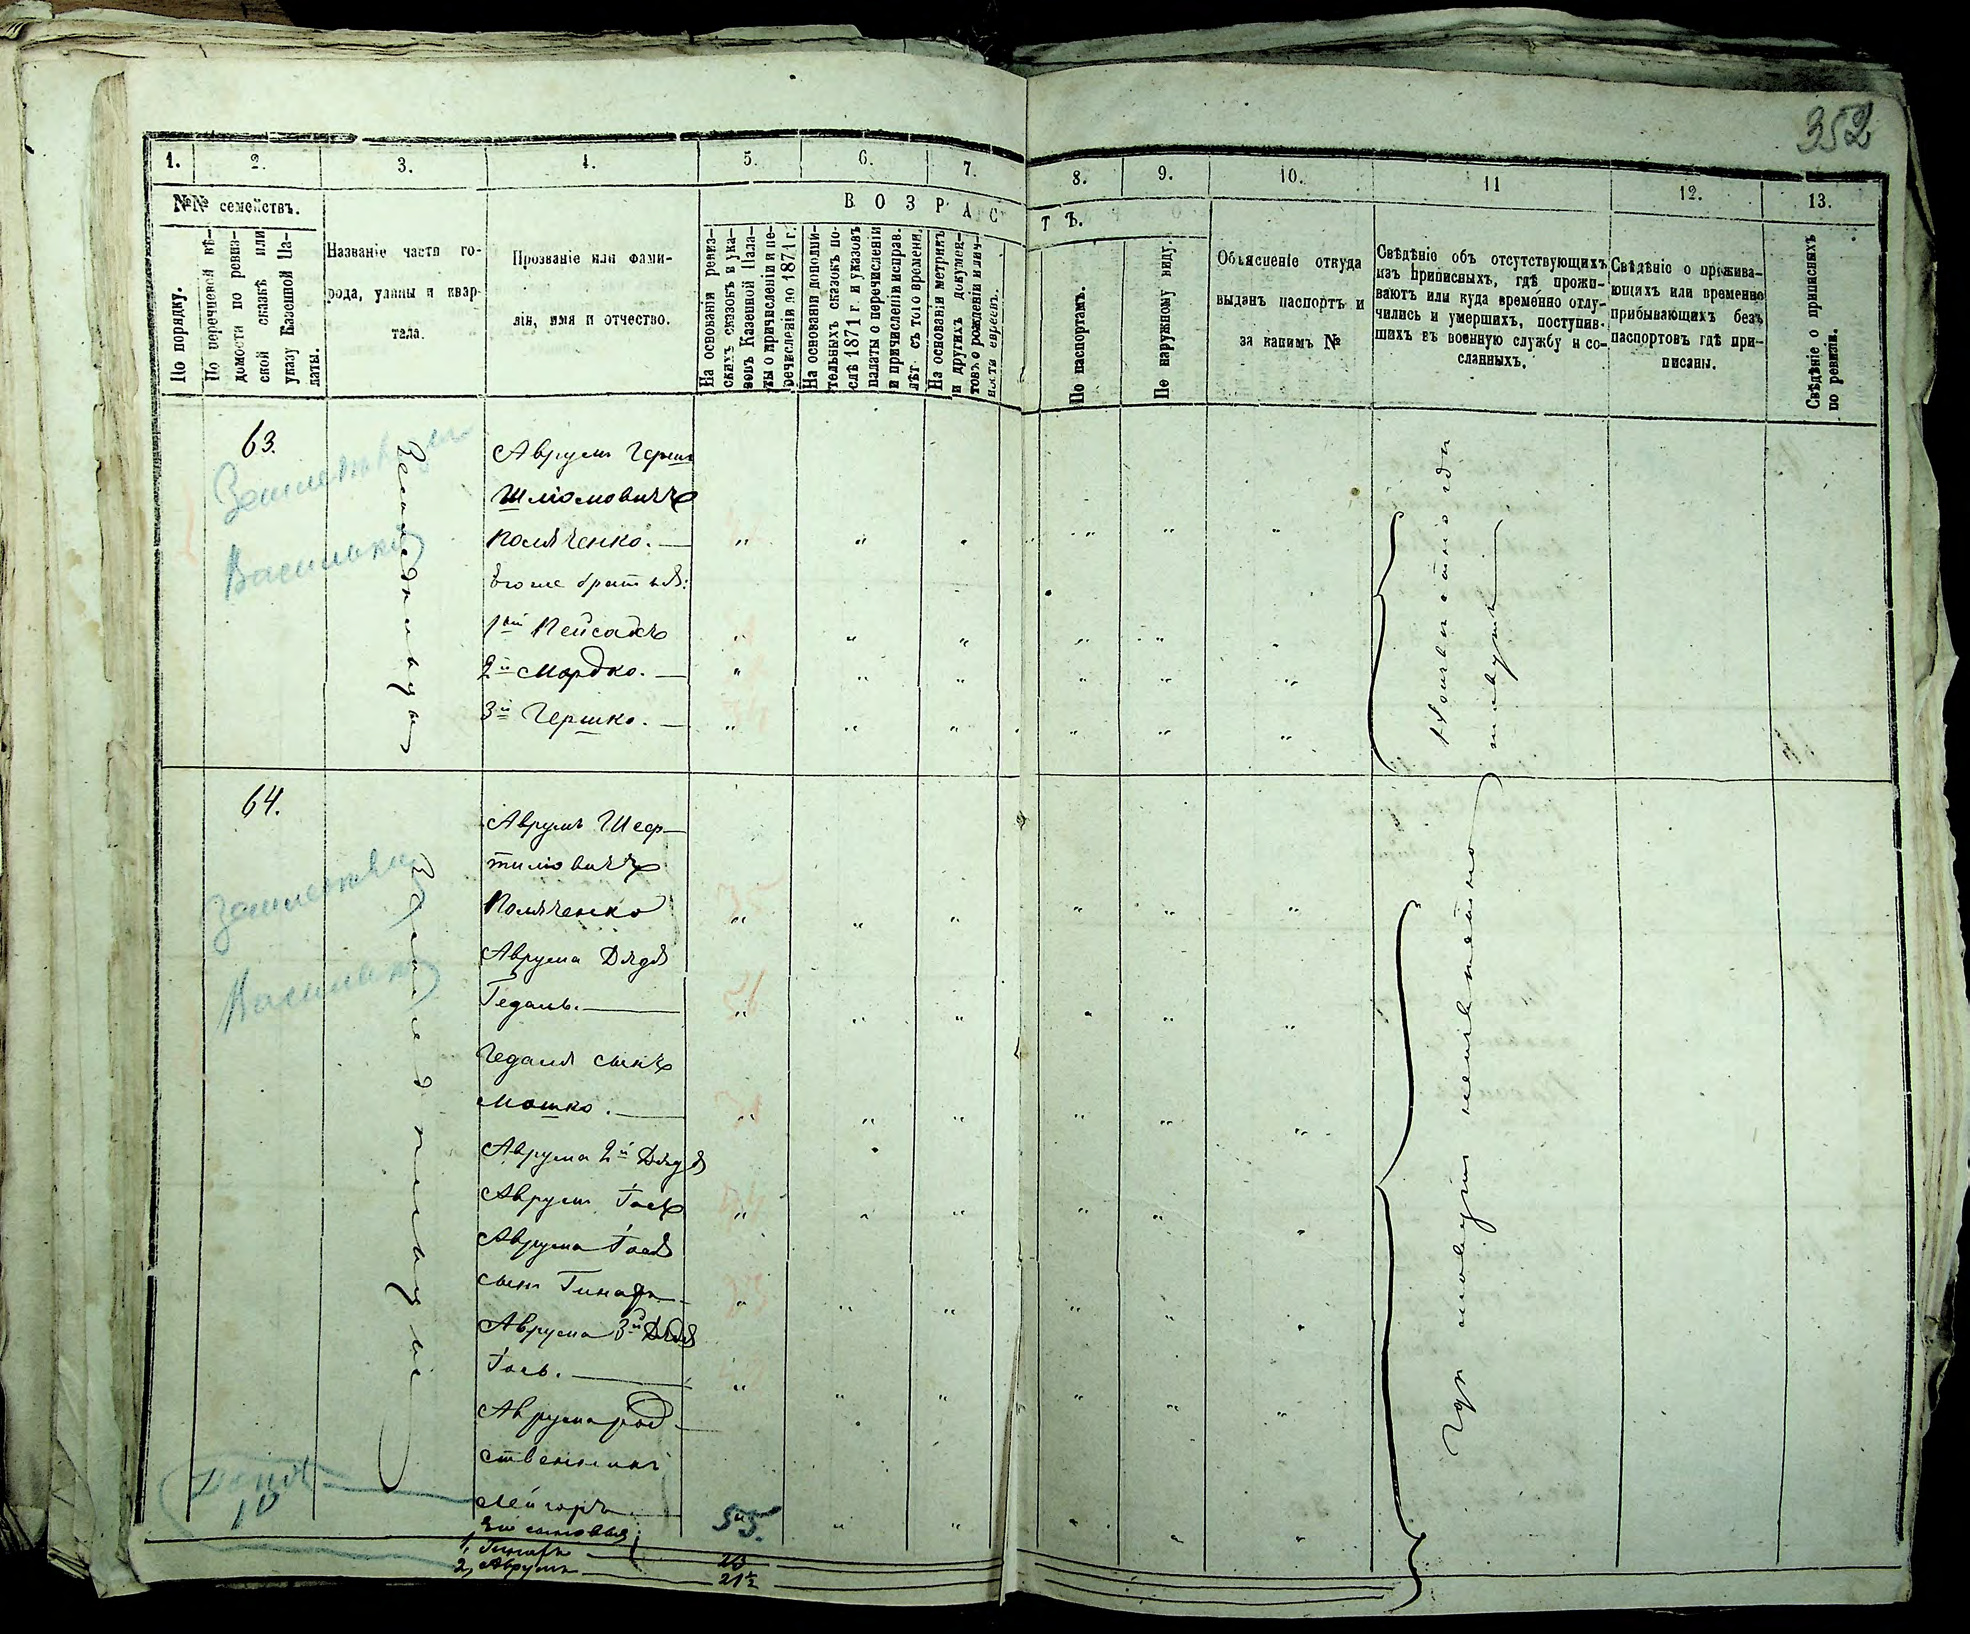 352
1. 2. 3. 4. 5. 6. 7. 8. 9. 10. 11 12. 13.
№№ семействъ.
По порядку.
По перечневой вѣ-
домости по ревиз-
ской сказкѣ или
указу Казенной Па-
латы.
Названіе части го-
рода, улицы и квар-
тала.
Прозваніе или фами-
лія, имя и отчество.
ВОЗРАСТЪ.
На основаніи ревиз-
скихъ сказокъ и ука-
зовъ Казенной Пала-
ты о причисленіи и пе-
речисленіи до 1871 г.
На основаніи дополни-
тельныхъ сказокъ по-
слѣ 1871 г. и указовъ
палаты о перечисленіи
и причисленіи исправ.
лѣт съ того времени.
На основаніи метрик
и другихъ докумен-
товъ о рожденіи и лич-
ности евреевъ.
По паспортамъ.
По наружному виду.
Объясненіе откуда
выданъ паспортъ и
за какимъ №
Свѣдѣніе объ отсутствующихъ
изъ приписныхъ, гдѣ прожи-
ваютъ или куда временно отлу-
чились и умершихъ, поступив-
шихъ въ военную службу и со-
сланныхъ.
Свѣдѣніе о прожива-
ющихъ или временно
прибывающихъ безъ
паспортовъ гдѣ при-
писаны.
Свѣдѣніе о приписныхъ
по ревизіи.
63.
Васильков
Аврумъ Герш
Шліомовичъ
Поляченко.
Его же братья:
1ый Пейсахъ
2й Мордко.
3й Гершко.
Неизвѣстно гдѣ
живутъ
64.
Васильков
Аврумъ Шеф-
тиліовичъ
Поляченко
Аврума дядя
Гедаль.
Гедаля сынъ
Мошко.
Аврума 2й дядя
Аврум Іось
Аврума Іося
сынъ
Аврума 3й дядя
Іось.
Аврума род-
ственникъ
Лейзоръ 55.
Его сыновья:
1, 23
2, Аврумъ 21½
Гдѣ живутъ неизвѣстно
10